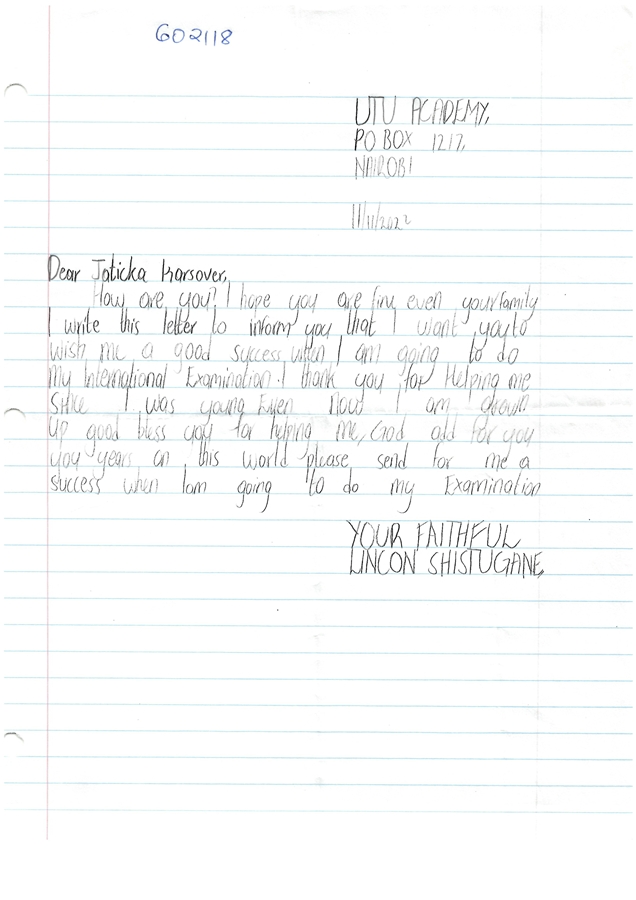 GO2118
UTU ACADEMY,
PO BOX 1217,
NAIROBI
11/11/2022
Dear Jaticka Karsover,
How are you? I hope you are fine even your family
I write this letter to inform you that I want you to
wish me a good success when I am going to do
My International Examination. I thank you for Helping me
I was young Even Now I am grown
up good bless you for helping me, God add for you
you years on this world please send for me a
success when Iam going to do my Examination
YOUR FAITHFUL
LINCON SHISTUGANE,